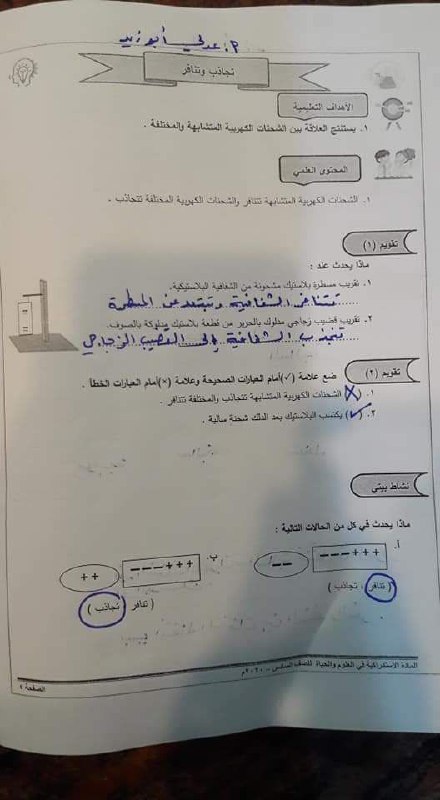 أ. عدلي أبو زيد
تجاذب وتنافر
الأهداف التعليمية
١. يستنتج العلاقة بين الشحنات الكهربية المتشابهة والمختلفة .
المحتوى العلمي
١. الشحنات الكهربية المتشابهة تتنافر والشحنات الكهربية المختلفة تتجاذب .
تقويم (١)
ماذا يحدث عند :
١. تقريب مسطرة بلاستيك مشحونة من الشفافية البلاستيكية.
تتنافر الشفافية وتبتعد عن المسطرة
٢. تقريب قضيب زجاجي مدلوك بالحرير من قطعة بلاستيك مدلوكة بالصوف.
تنجذب الشفافية إلى القضيب الزجاجي
تقويم (٢)
ضع علامة (✓) أمام العبارات الصحيحة وعلامة (×) أمام العبارات الخطأ .
١. (X) الشحنات الكهربية المتشابهة تتجاذب والمختلفة تتنافر .
٢. (✓) يكتسب البلاستيك بعد الدلك شحنة سالبة .
نشاط بيتي
ماذا يحدث في كل من الحالات التالية :
أ.
− − − + + +
− −
( تنافر ، تجاذب )
ب.
− − − + + +
+ +
( تنافر ، تجاذب )
المادة الاستدراكية في العلوم والحياة للصف السادس - ٢٠٢٠م
الصفحة ٩